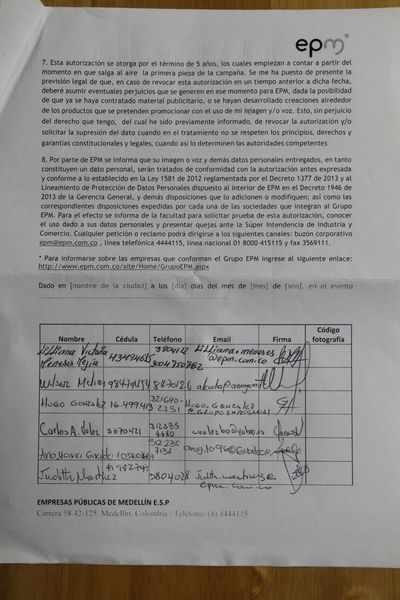 epm
7. Esta autorización se otorga por el término de 5 años, los cuales empiezan a contar a partir del
momento en que salga al aire la primera pieza de la campaña. Se me ha puesto de presente la
previsión legal de que, en caso de revocar esta autorización en un tiempo anterior a dicha fecha,
deberé asumir eventuales perjuicios que se generen en ese momento para EPM, dada la posibilidad
de que ya se haya contratado material publicitario, o se hayan desarrollado creaciones alrededor
de los productos que se pretenden promocionar con el uso de mi imagen y/o voz. Esto, sin perjuicio
del derecho que tengo, del cual he sido previamente informado, de revocar la autorización y/o
solicitar la supresión del dato cuando en el tratamiento no se respeten los principios, derechos y
garantías constitucionales y legales, cuando así lo determinen las autoridades competentes
8. Por parte de EPM se informa que su imagen o voz y demás datos personales entregados, en tanto
constituyen un dato personal, serán tratados de conformidad con la autorización antes expresada
y conforme a lo establecido en la Ley 1581 de 2012 reglamentada por el Decreto 1377 de 2013 y al
Lineamiento de Protección de Datos Personales dispuesto al interior de EPM en el Decreto 1946 de
2013 de la Gerencia General, y demás disposiciones que lo adicionen o modifiquen; así como las
correspondientes disposiciones expedidas por cada una de las sociedades que integran al Grupo
EPM. Para el efecto se informa de la facultad para solicitar prueba de esta autorización, conocer
el uso dado a sus datos personales y presentar quejas ante la Súper Intendencia de Industria y
Comercio. Cualquier petición o reclamo podrá dirigirse a los siguientes canales: buzón corporativo
epm@epm.com.co , línea telefónica 4444115, línea nacional 01 8000 415115 y fax 3569111.
* Para informarse sobre las empresas que conforman el Grupo EPM ingrese al siguiente enlace:
http://www.epm.com.co/site/Home/GrupoEPM.aspx
Dado en [nombre de la ciudad] a los [día] días del mes de [mes] de [año], en el evento
Nombre Cédula Teléfono Email Firma Código fotografía
Liliana Victoria 43494665 3804112 liliana.meneses
Meneses Mejía @epm.com.co
Wilser
HUGO GONZALEZ 16.499.413 321640- HUGO.GONZALEZ
2351
Carlos A. Velez
Judith Martínez 3804028
epm.com.co
EMPRESAS PÚBLICAS DE MEDELLÍN E.S.P
Carrera 58 42-125. Medellín, Colombia / Teléfono: (4) 4444115